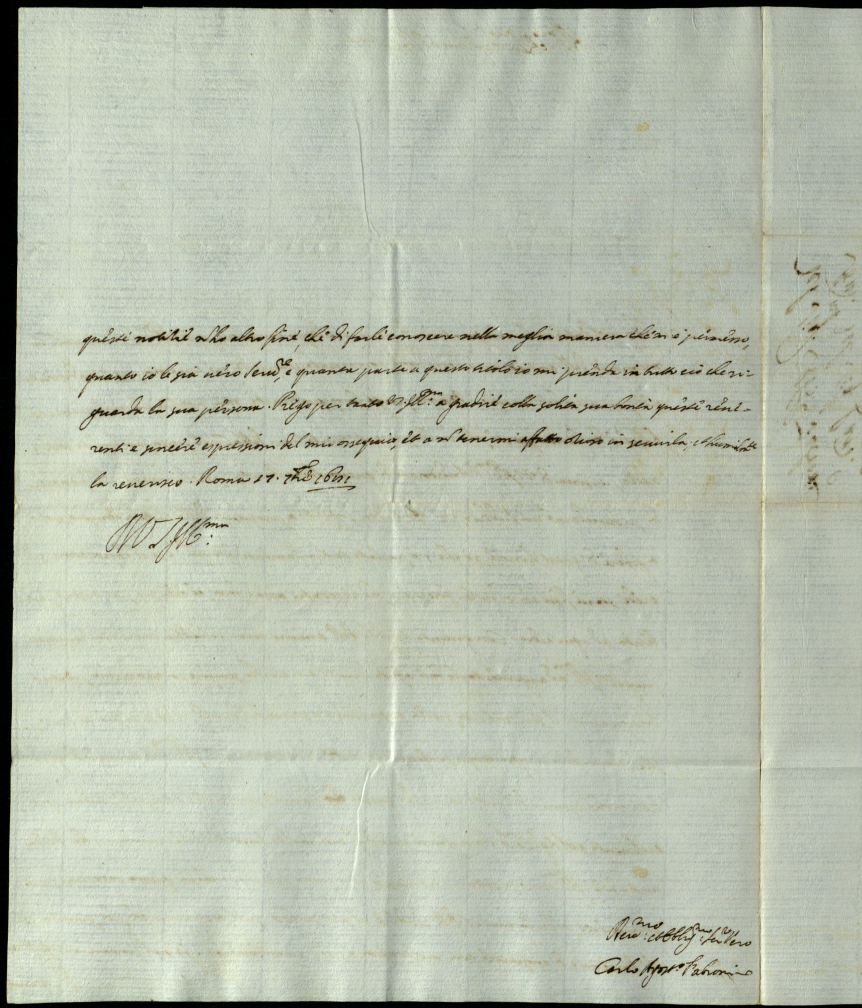 queste notitie nō ho altro fine, che di farle conoscere nella meglia maniera che m'è permesso,
quanto io le sia vero ser.re, e quanta parte a questo titolo io mi prenda in tutto ciò che ri-
guarda la sua persona. Prego per tanto V.S. Ill.ma a gradire colla solita sua bontà queste reve-
renti e sincere espressioni del mio ossequio, et a nō tenermi affatto otioso in servirla, et humilm.te
la reverisco. Roma 17. 7bre
Di V.S. Ill.ma
Carlo Agost.o Fabroni